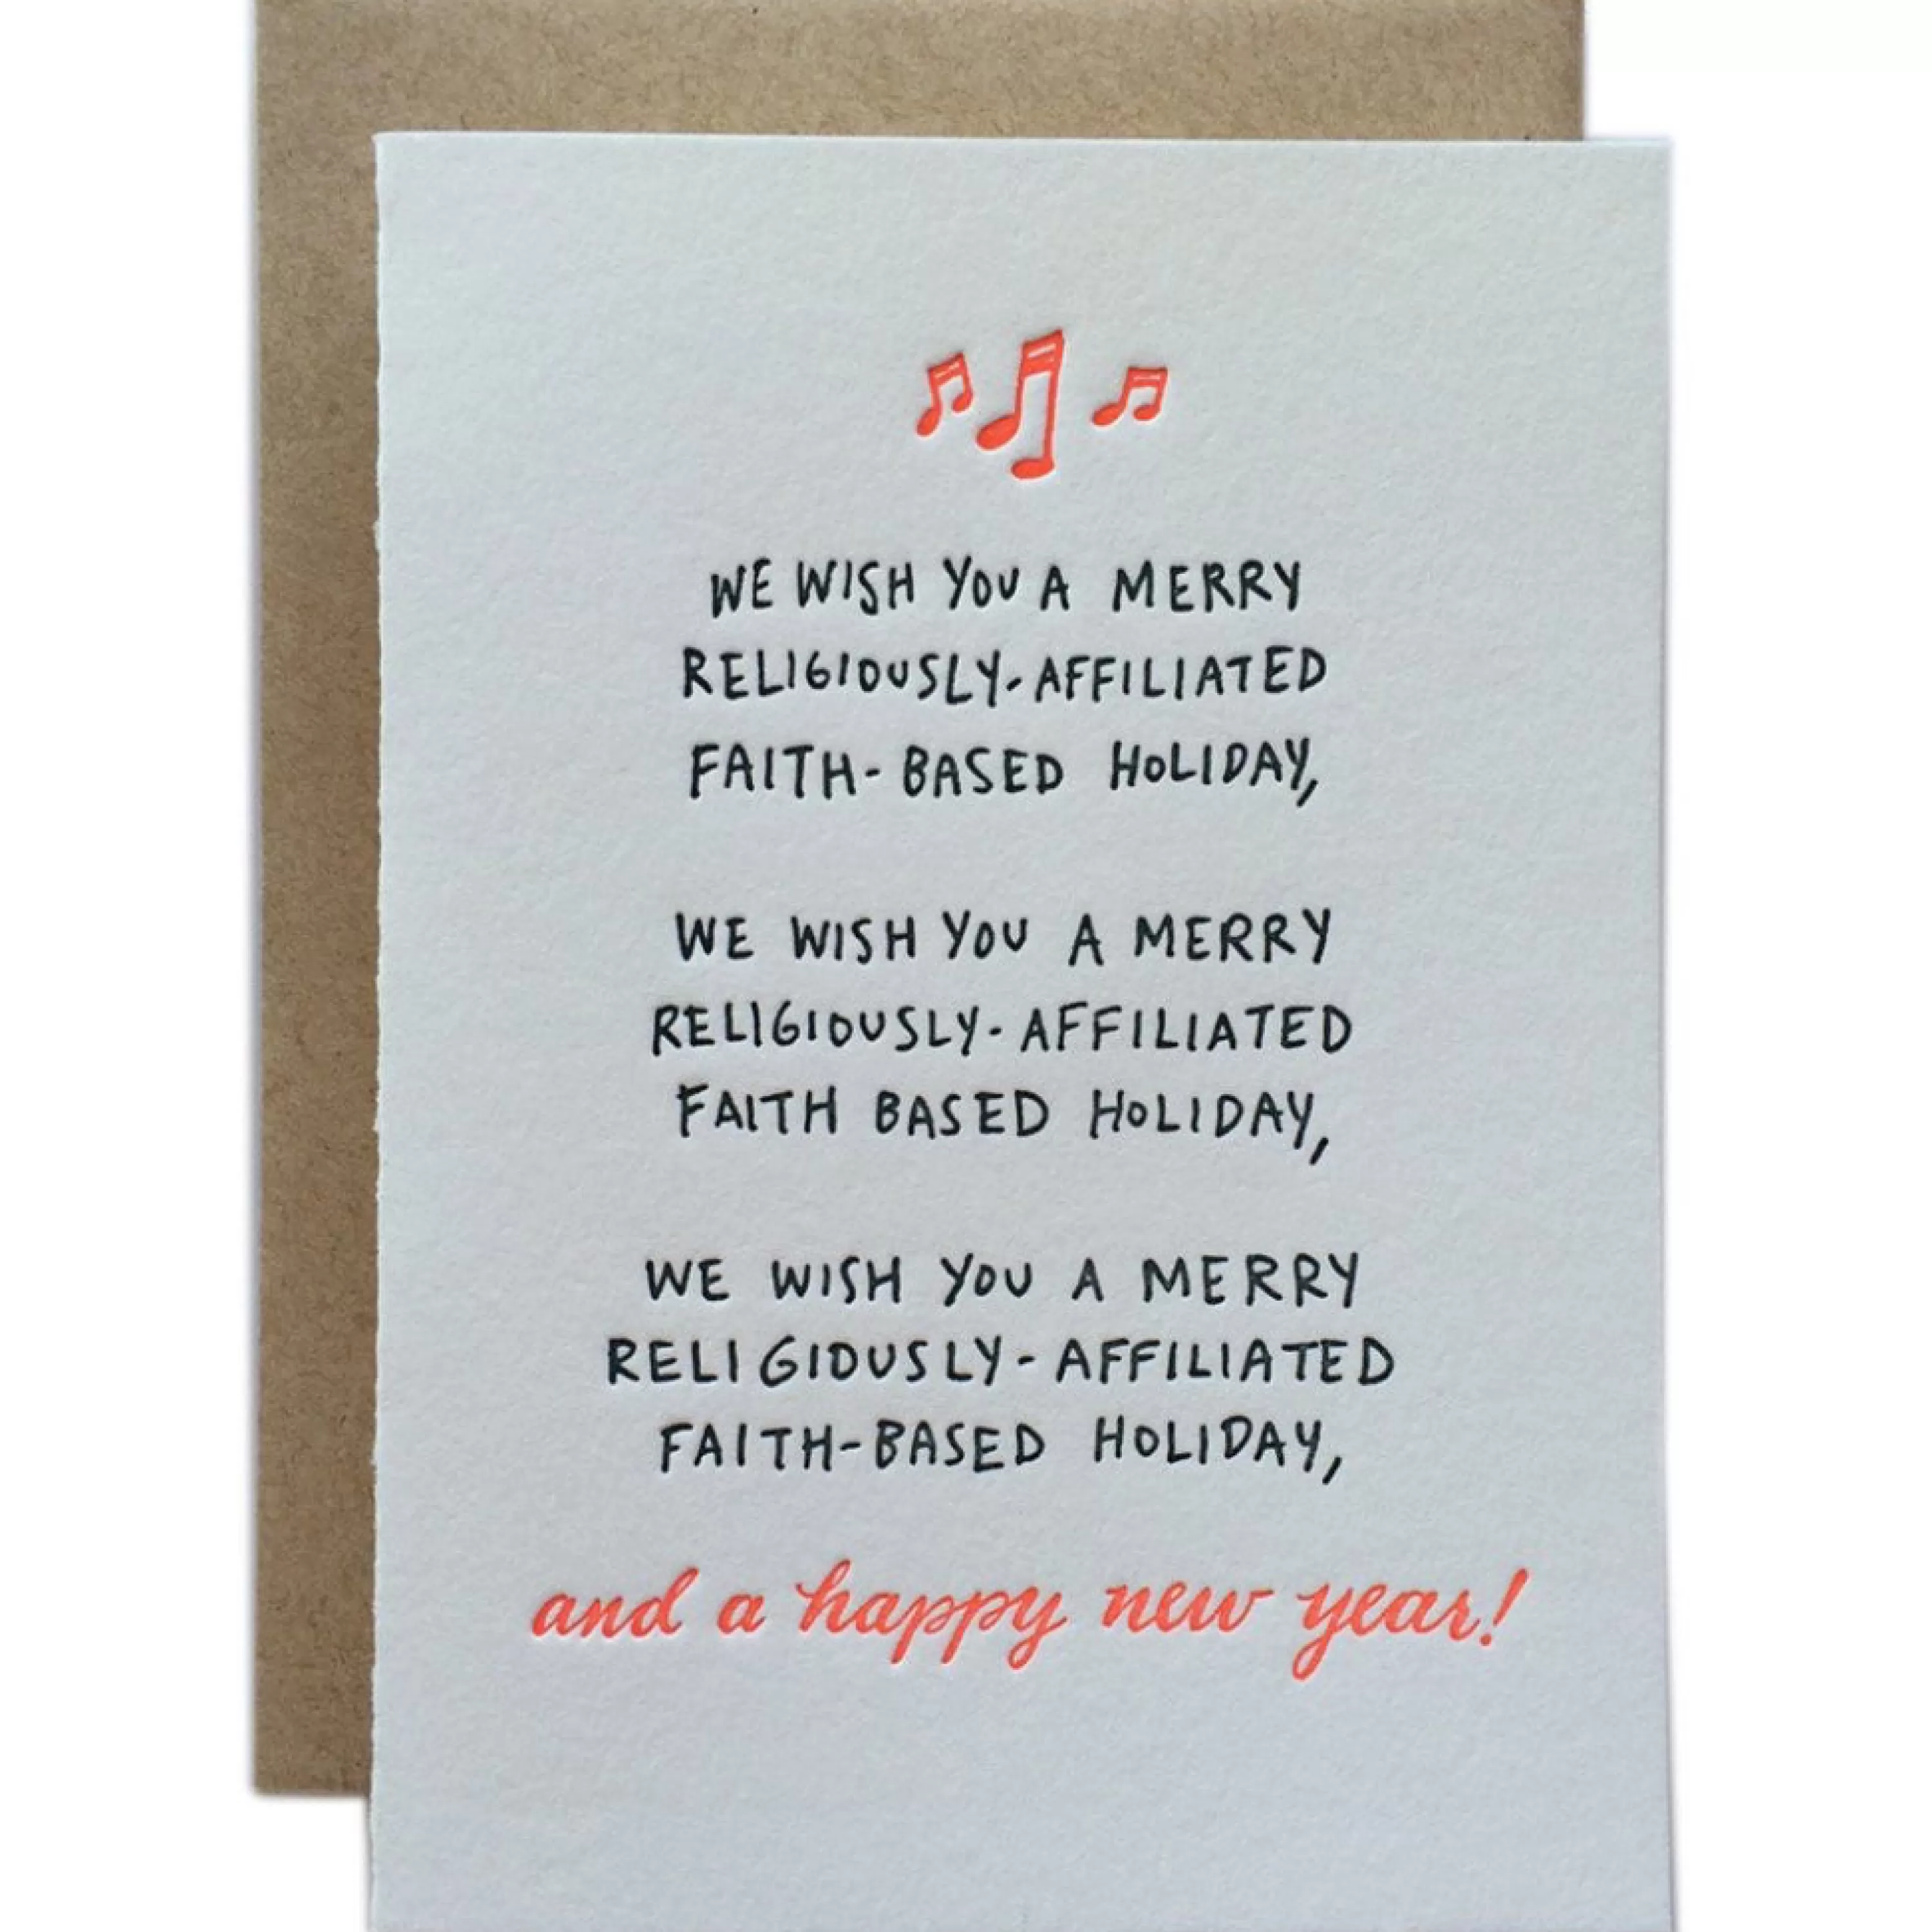 WE WISH YOU A MERRY
RELIGIOUSLY-AFFILIATED
FAITH-BASED HOLIDAY,
WE WISH YOU A MERRY
RELIGIOUSLY-AFFILIATED
FAITH BASED HOLIDAY,
WE WISH YOU A MERRY
RELIGIOUSLY-AFFILIATED
FAITH-BASED HOLIDAY,
and a happy new year!